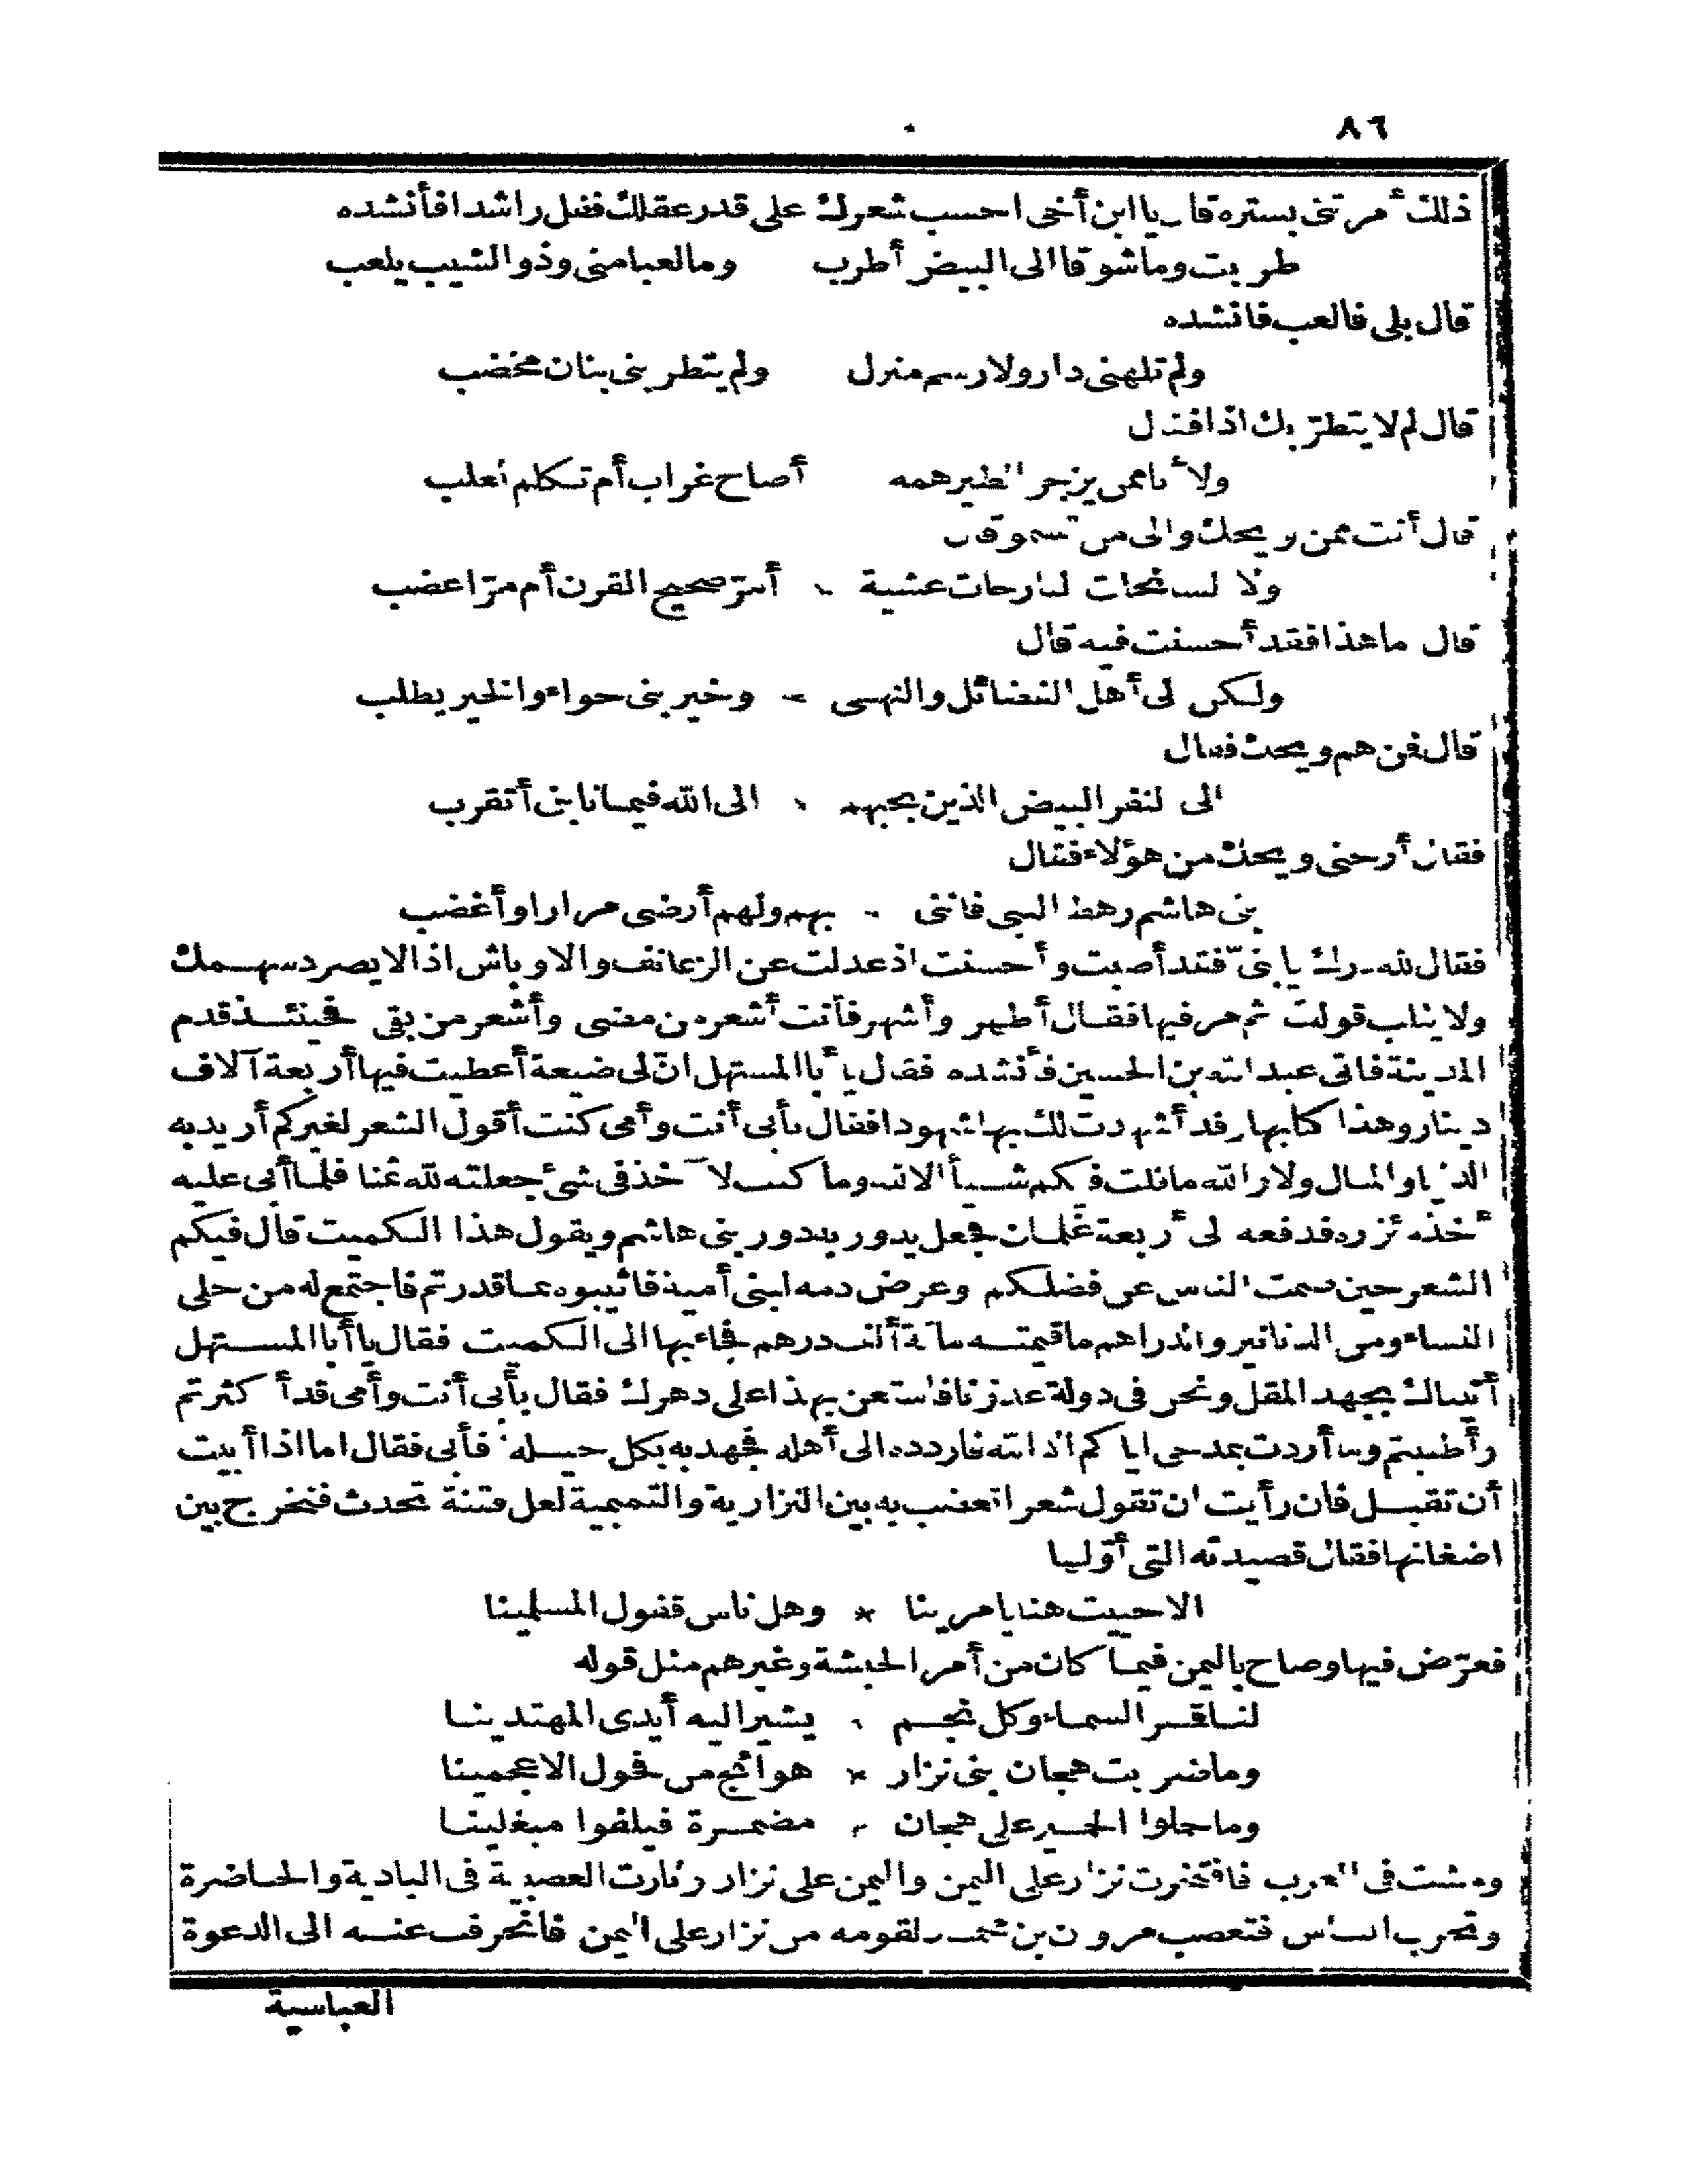 ٨٦
ذلك أمرتني بستره قال يا ابن أخي احسب شعرك على قدر عقلك فقل راشدا فأنشده
طربت وما شوقا الى البيض أطرب وما لعبا مني وذو الشيب يلعب
قال بلى فالعب فانشده
ولم تلهني دار ولا رسم منزل ولم يتطربني بنان مخضب
قال لم لا يتطرّبك اذا فقال
ولا أنا ممن يزجر الطير همه أصاح غراب أم تكلم ثعلب
قال أنت ممن ويحك والى من تسمو قال
ولا السانحات البارحات عشية أمرّ صحيح القرن أم مرّ اعضب
قال ما هذا فقد أحسنت فيه قال
ولكن الى أهل الفضائل والنهى وخير بني حواء والخير يطلب
قال فمن هم ويحك فقال
الى النفر البيض الذين بحبهم الى الله فيما نابني أتقرب
فقال أرحني ويحك من هؤلاء فقال
بني هاشم رهط النبي فانني بهم ولهم أرضى مرارا وأغضب
فقال لله درك يا بنيّ فقد أصبت وأحسنت اذ عدلت عن الزعانف والاوباش اذا لا يصرد سهمك
ولا يكذب قولك ثم مر فيها فقال أظهر وأشهر فأنت أشعر من مضى وأشعر من بقى فحينئذ قدم
المدينة فاتى عبد الله بن الحسين فأنشده فقال يا أبا المستهل ان لي ضيعة أعطيت فيها أربعة آلاف
دينار وهذا كتابها وقد أشهدت لك بها شهودا فقال بأبي أنت وأمي كنت أقول الشعر لغيركم أريد به
الدنيا والمال ولا والله ما قلت فيكم شيأ الا لله وما كنت لآخذ في شئ جعلته لله ثمنا فلما أبى عليه
أخذه ازره فدفعه الى أربعة غلمان فجعل يدور بدور بني هاشم ويقول هذا الكميت قال فيكم
الشعر حين صمت الناس عن فضلكم وعرض دمه لبني أمية فاثيبوه بما قدرتم فاجتمع له من حلى
النساء ومن الدنانير والدراهم ما قيمته مائة ألف درهم فجاء بها الى الكميت فقال يا أبا المستهل
أتيناك بجهد المقل ونحن في دولة عدونا فاستعن بهذا على دهرك فقال بأبي أنت وأمي قد أكثرتم
وأطيبتم وما أردت بمدحي اياكم الا الله فاردده الى أهله فجهد به بكل حيلة فأبى فقال اما اذا أبيت
أن تقبل فان رأيت ان تقول شعرا تعصب به بين النزارية والتميمية لعل فتنة تحدث فنخرج بين
اضغانها فقال قصيدته التي أوّلها
الا حييت هنا يا مرينا * وهل ناس قضول المسلمينا
فعرّض فيها وصاح باليمن فيما كان من أمر الحبشة وغيرهم مثل قوله
لنا قمر السماء وكل نجم يشير اليه أيدي المهتدينا
وما ضربت هجان بني نزار * هوائج من فحول الاعجمينا
وما حملوا الحمير على هجان مضمرة فيلفوا مبغلينا
ومشت في العرب فافتخرت نزار على اليمن واليمن على نزار وثارت العصبية في البادية والحاضرة
وتحزب الناس فتعصب مروان بن محمد لقومه من نزار على اليمن فانحرف عنه الى الدعوة
العباسية